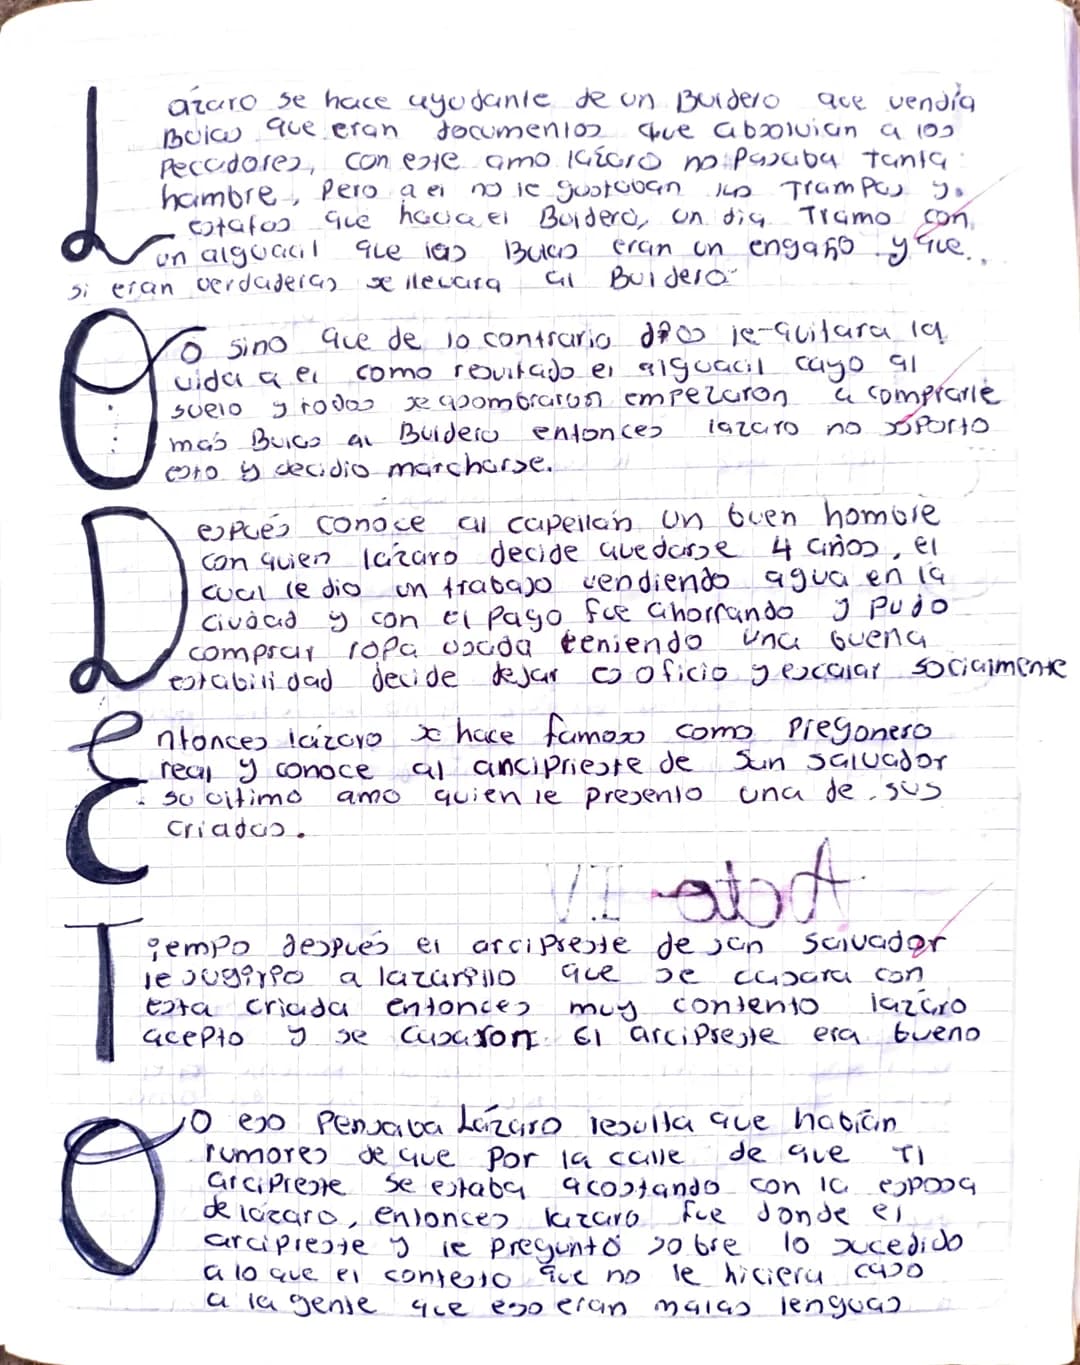 Lázaro se hace ayudante de un Buldero que vendía
Bulas que eran documentos que absolvian a los
Pecadores, con este amo lázaro no pasaba tanta
hambre, Pero a el no le gustaban las Trampas y
estafas que hacia el Buldero, un dia Tramo con
un alguacil que las Bulas eran un engaño y que
si eran verdaderas se llevara al Buldero
O sino que de lo contrario dios le quitara la
vida a el como resultado el alguacil cayo al
suelo y todos se asombraron empezaron a comprarle
mas Bulas al Buldero entonces lazaro no soporto
esto y decidio marcharse.
Después conoce al capellán un buen hombre
con quien lázaro decide quedarse 4 años, el
cual le dio un trabajo vendiendo agua en la
ciudad y con el Pago fue ahorrando y pudo
comprar ropa usada teniendo una buena
estabilidad decide dejar es oficio y escalar socialmente
Entonces lázaro se hace famoso como Pregonero
real y conoce al anciprieste de San Salvador
su ultimo amo quien le presento una de sus
criadas.
Acto IV
Tiempo después el arcipreste de san Salvador
le sugirio a lazarillo que se casara con
esta criada entonces muy contento lazáro
acepto y se casaron. El arcipreste era bueno
O eso Pensaba Lázaro resulta que habían
rumores de que por la calle de que Tl
arcipreste se estaba acostando con la esposa
de lázaro, entonces lazaro fue donde el
arcipreste y le preguntó sobre lo sucedido
a lo que el contesto que no le hiciera caso
a la gente que eso eran malas lenguas